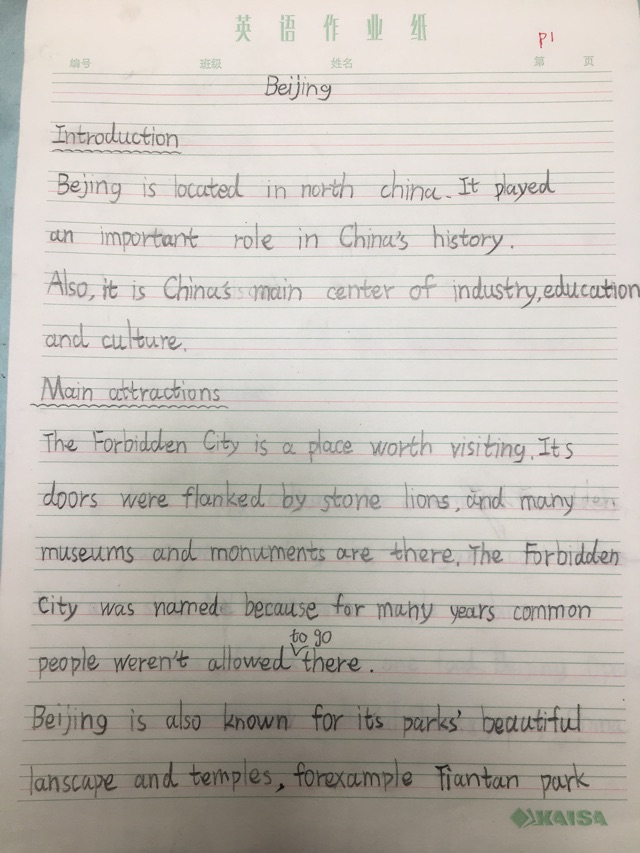 英语作业纸
P1
编号 班级 姓名 第 页
Beijing
Introduction
Bejing is located in north china. It played
an important role in China's history.
Also, it is China's main center of industry, education
and culture.
Main attractions
The Forbidden City is a place worth visiting. Its
doors were flanked by stone lions, and many
museums and monuments are there. The Forbidden
City was named because for many years common
to go
people weren't allowed there.
Beijing is also known for its parks' beautiful
lanscape and temples, forexample Tiantan park
KAISA